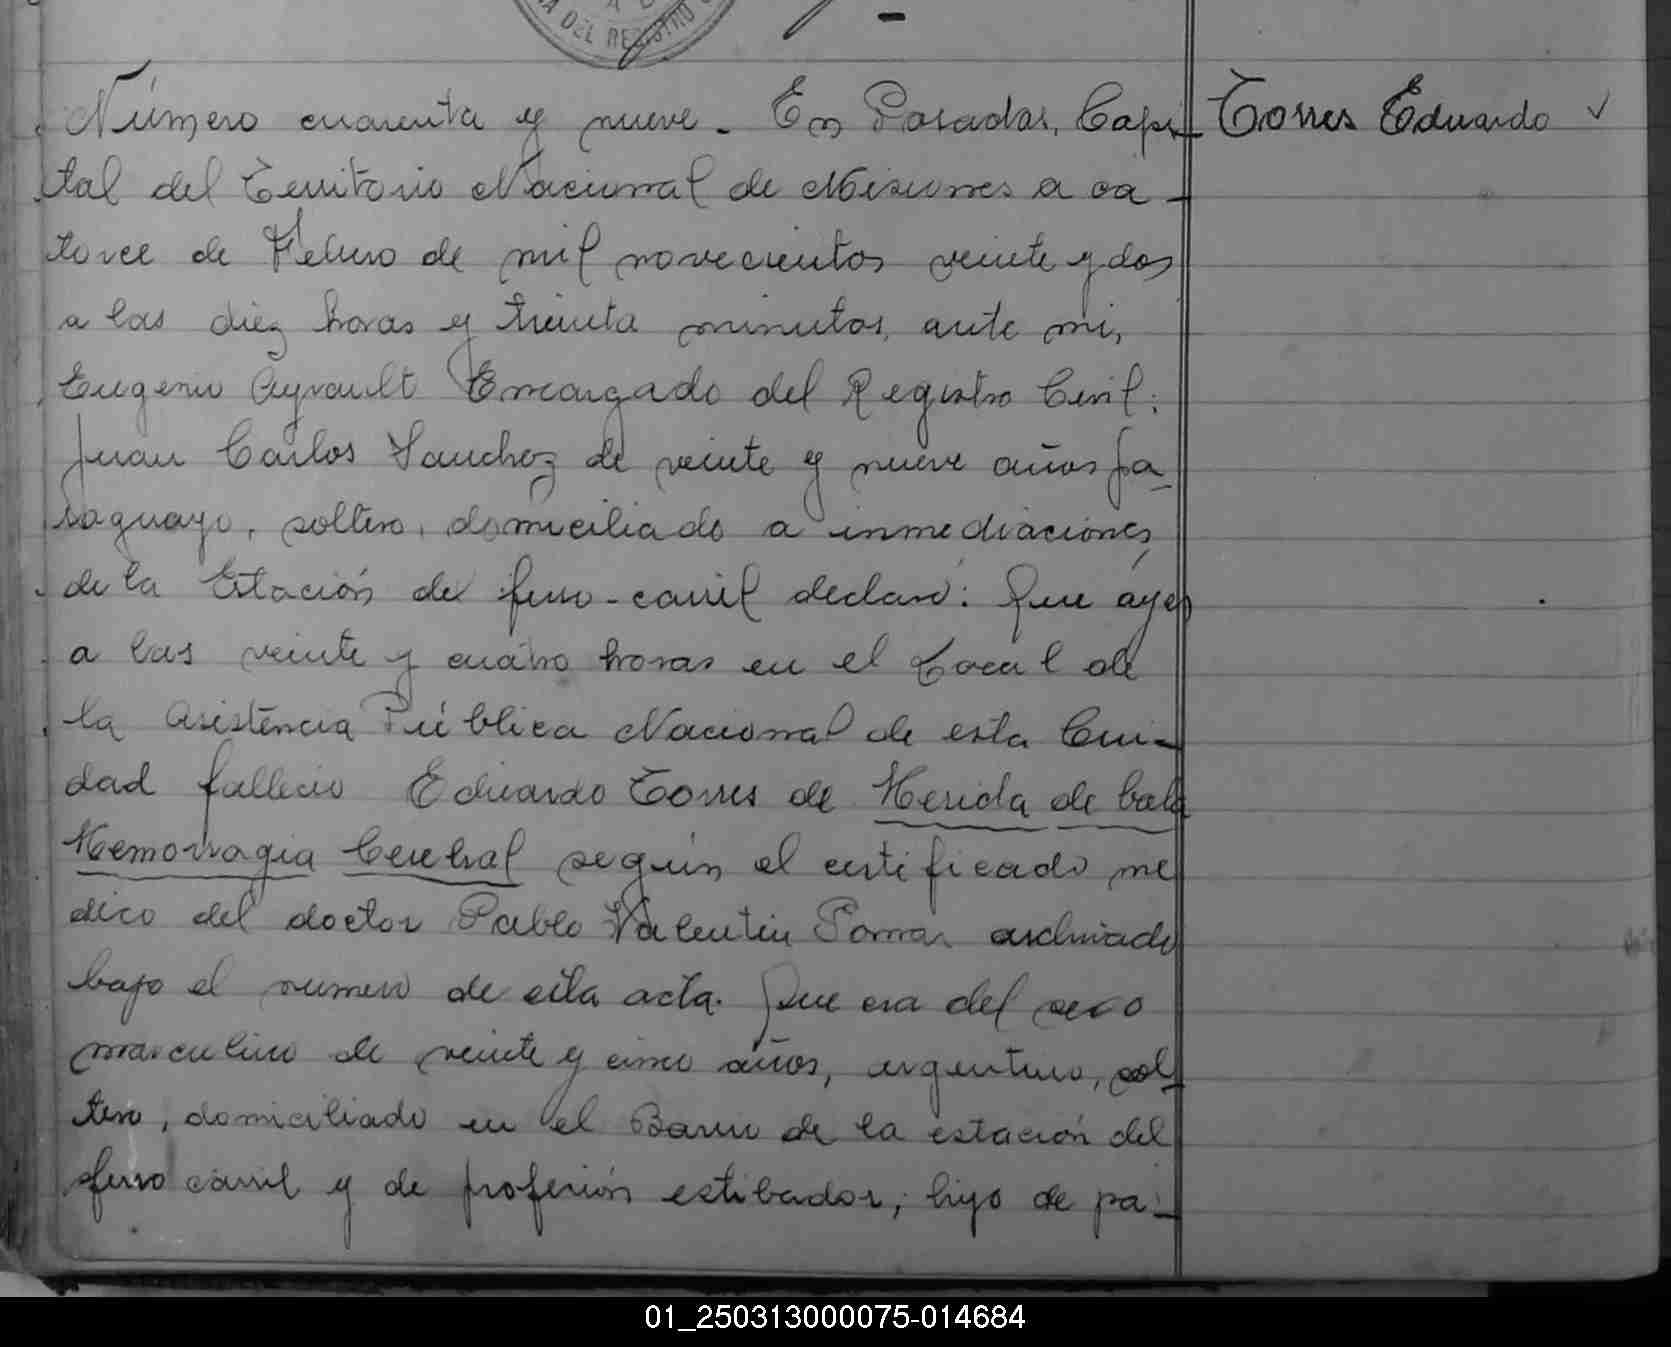 DEL REGISTRO
Número cuarenta y nueve. En Posadas, Capi- Torres Eduardo ✓
tal del Territorio Nacional de Misiones a ca-
torce de Febrero de mil novecientos veinte y dos
a las diez horas y treinta minutos, ante mi,
Eugenio Ayrault Encargado del Registro Civil:
Juan Carlos Sanchez de veinte y nueve años pa-
raguayo, soltero, domiciliado a inmediaciones
de la Estación del ferro-carril declaró: Que áyer
a las veinte y cuatro horas en el Local de
la Asistencia Pública Nacional de esta Ciu-
dad fallecio Eduardo Torres de Herida de bala
Hemorragia Cerebral según el certificado me
dico del doctor Pablo Valentin Pomar archivado
bajo el numero de esta acta. Que era del sexo
masculino de veinte y cinco años, argentino, sol-
tero, domiciliado en el Barrio de la estación del
ferro carril y de profesión estibador; hijo de pa-
01_250313000075-014684